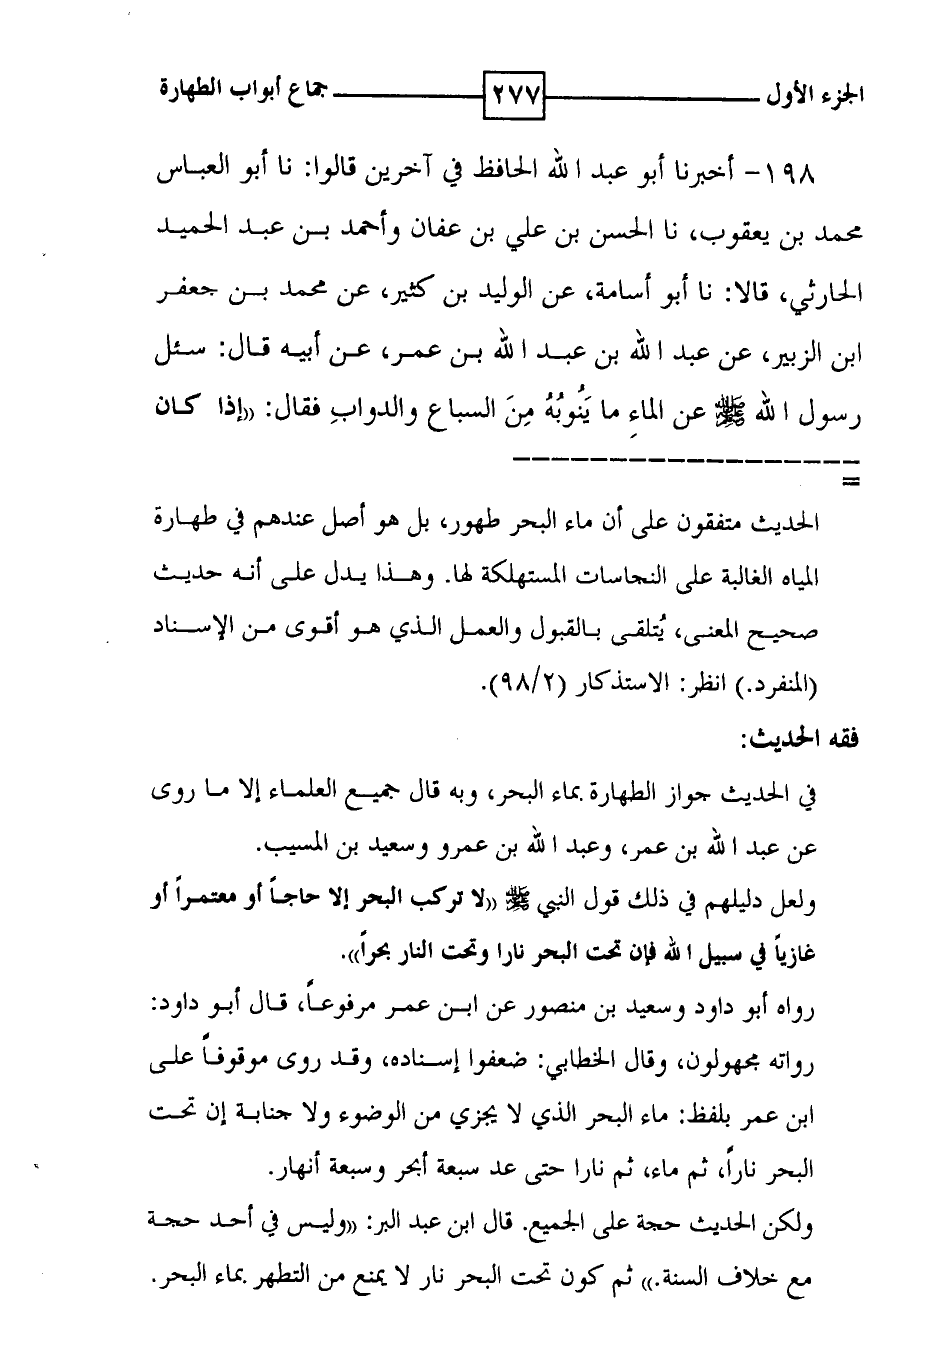 الجزء الأول ٢٧٧ جماع أبواب الطهارة
١٩٨- أخبرنا أبو عبد الله الحافظ في آخرين قالوا: نا أبو العباس
محمد بن يعقوب، نا الحسن بن علي بن عفان وأحمد بن عبد الحميد
الحارثي، قالا: نا أبو أسامة، عن الوليد بن كثير، عن محمد بن جعفر
ابن الزبير، عن عبد الله بن عبد الله بن عمر، عن أبيه قال: سئل
رسول الله ﷺ عن الماءِ ما يَنُوبُهُ مِنَ السباع والدوابِ فقال: ((إذا كان
=
الحديث متفقون على أن ماء البحر طهور، بل هو أصل عندهم في طهارة
المياه الغالبة على النجاسات المستهلكة لها. وهذا يدل على أنه حديث
صحيح المعنى، يُتلقى بالقبول والعمل الذي هو أقوى من الإسناد
(المنفرد.) انظر: الاستذكار (٩٨/٢).
فقه الحديث:
في الحديث جواز الطهارة بماء البحر، وبه قال جميع العلماء إلا ما روى
عن عبد الله بن عمر، وعبد الله بن عمرو وسعيد بن المسيب.
ولعل دليلهم في ذلك قول النبي ﷺ ((لا تركب البحر إلا حاجاً أو معتمراً أو
غازياً في سبيل الله فإن تحت البحر نارا وتحت النار بحراً)).
رواه أبو داود وسعيد بن منصور عن ابن عمر مرفوعاً، قال أبو داود:
رواته مجهولون، وقال الخطابي: ضعفوا إسناده، وقد روى موقوفاً على
ابن عمر بلفظ: ماء البحر الذي لا يجزي من الوضوء ولا جنابة إن تحت
البحر ناراً، ثم ماء، ثم نارا حتى عد سبعة أبحر وسبعة أنهار.
ولكن الحديث حجة على الجميع. قال ابن عبد البر: ((وليس في أحد حجة
مع خلاف السنة.)) ثم كون تحت البحر نار لا يمنع من التطهر بماء البحر.